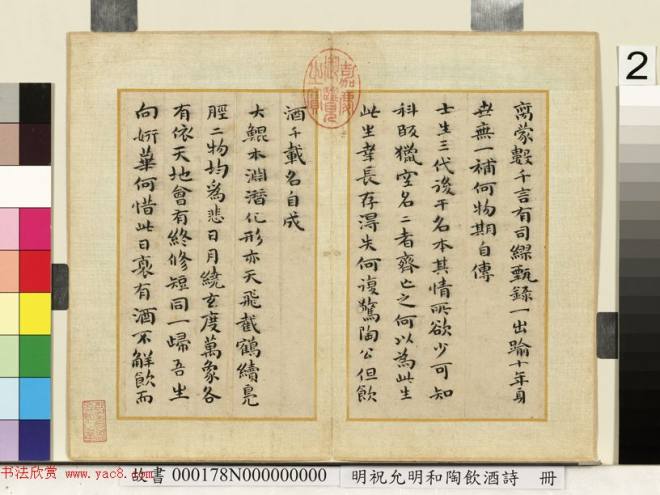 寓蒙數千言有司繆甄錄一出踰十年身
世無一補何物期自傳
士生三代後干名本其情所欲少可知
科取獵空名二者齊亡之何以為此生
此生幸長存得失何復驚陶公但飲
酒千載名自成
大鯤本淵潛化形亦天飛截鶴續鳧
脛二物均為悲日月繞玄度萬象各
有依天地會有終修短同一歸吾生
向妍華何惜此日衰有酒不解飲而
嘉慶御覽之寶
2
书法欣赏 www.yac8.com
故書 000178N000000000 明祝允明和陶飲酒詩 冊